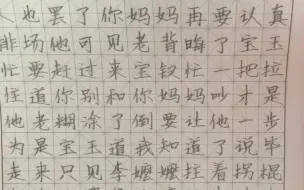 人也罢了你妈妈再要认真
排场他可见老背晦了宝玉
忙要赶过来宝钗忙一把拉
住道你别和你妈妈吵才是
他老糊涂了倒要让他一步
为是宝玉道我知道了说毕
走来只见李嬷嬷拄着拐棍